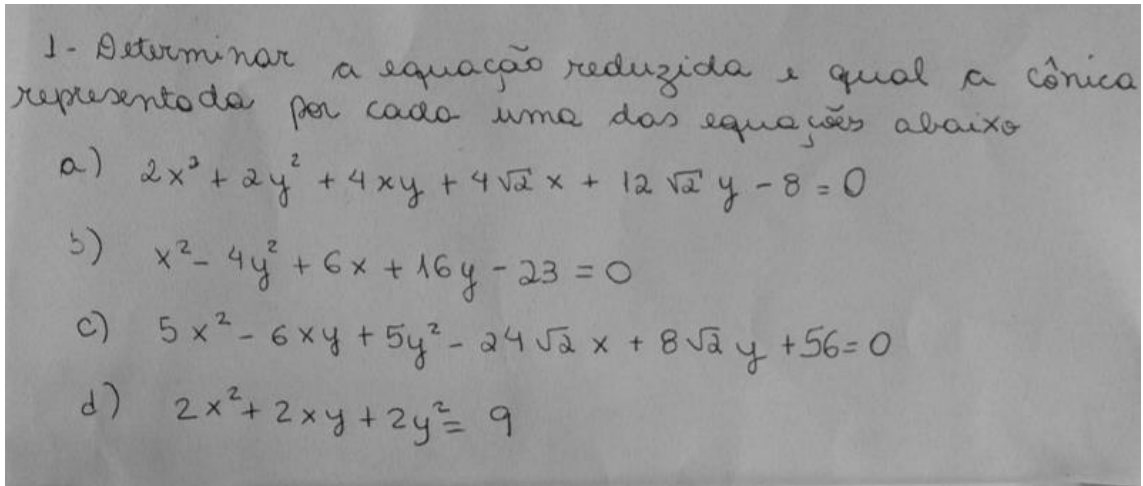 1- Determinar a equação reduzida e qual a cônica
representada por cada uma das equações abaixo
a) 2x² + 2y² + 4xy + 4√2 x + 12 √2 y - 8 = 0
b) x² - 4y² + 6x + 16y - 23 = 0
c) 5x² - 6xy + 5y² - 24√2 x + 8√2 y + 56 = 0
d) 2x² + 2xy + 2y² = 9